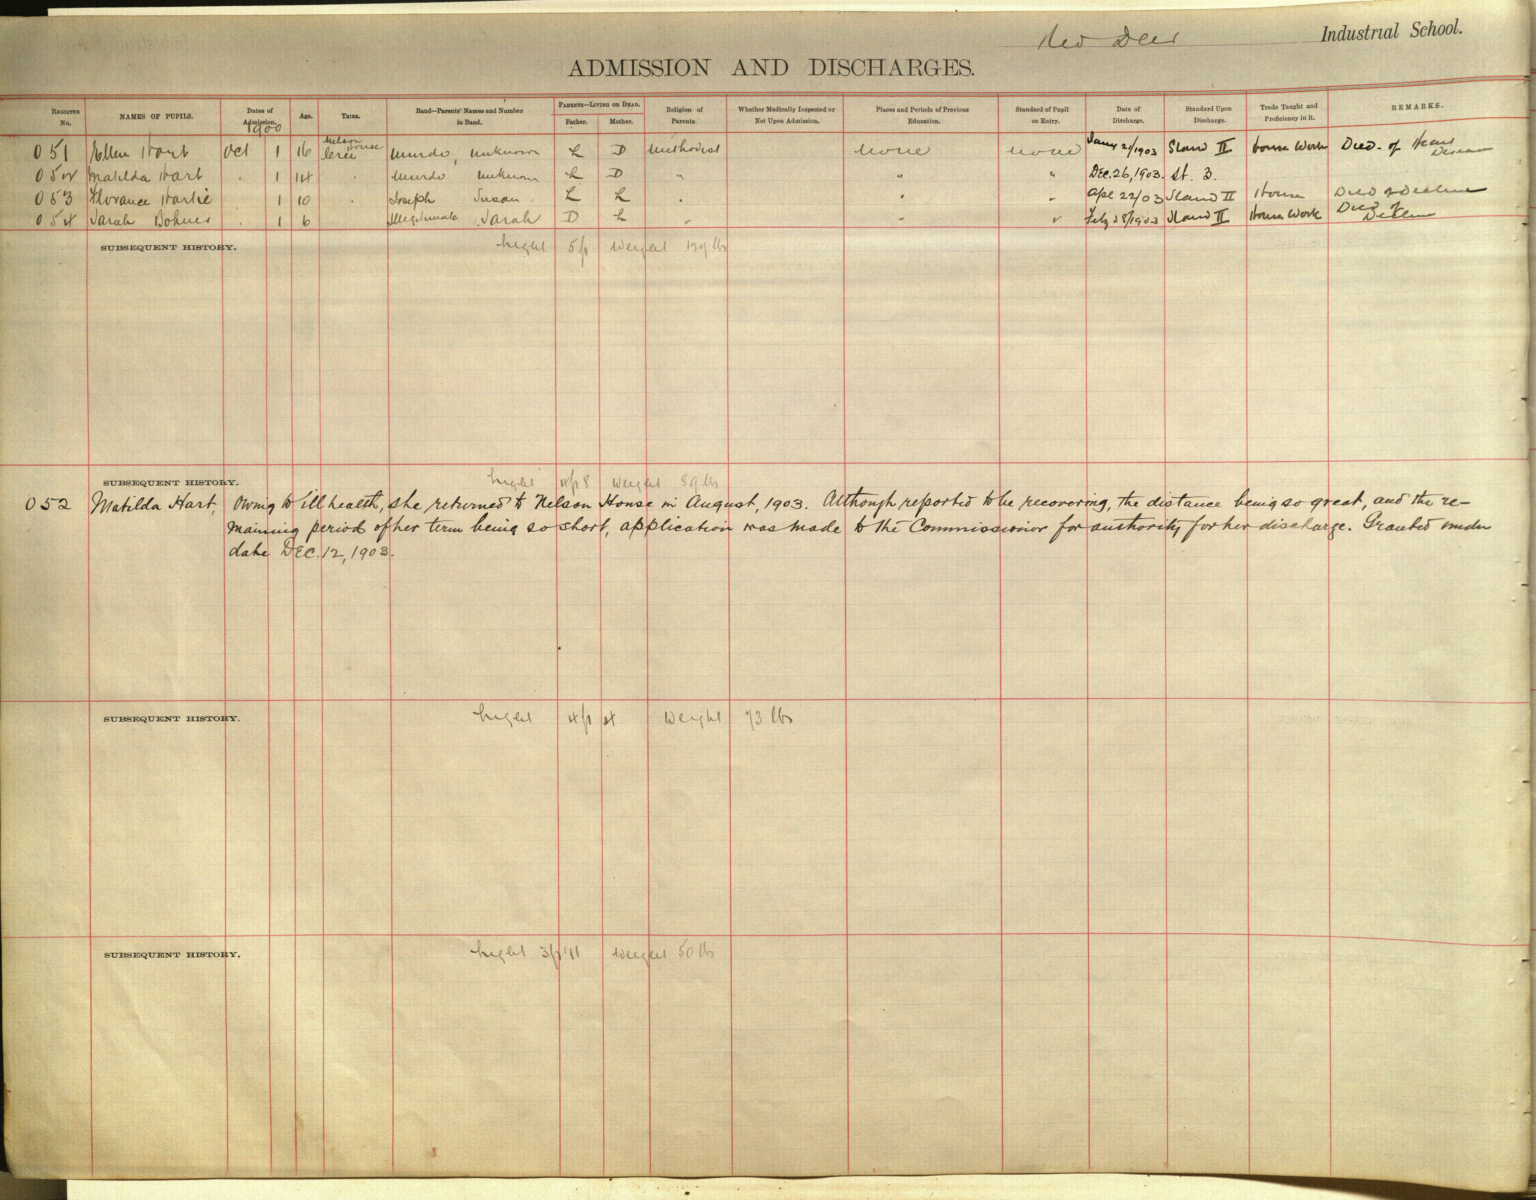 Red Deer Industrial School.
ADMISSION AND DISCHARGES.
REGISTER No. NAMES OF PUPILS. Dates of Admission. Age. TRIBE. Band—Parents' Names and Number in Band. PARENTS—LIVING OR DEAD. Father. Mother. Religion of Parents. Whether Medically Inspected or Not Upon Admission. Places and Periods of Previous Education. Standard of Pupil on Entry. Date of Discharge. Standard Upon Discharge. Trade Taught and Proficiency in it. REMARKS.
1900
051 Ellen Hart Oct 1 16 Nelson House Cree Murdo, unknown L D Methodist none none Jany 21/1903 Stand II House Work Died of Heart Disease
052 Matilda Hart . 1 14 . Murdo unknown L D " " " Dec. 26, 1903. St. 3.
053 Florance 1 10 . Joseph Susan . L L Apl 22/03 Stand II House Died of Decline
054 Sarah 1 6 Sarah D L Feby 28/1903 Stand II House Work Died of Decline
SUBSEQUENT HISTORY. hight 5/1 weight lbs
SUBSEQUENT HISTORY. hight 4/8 weight 89 lbs
052 Matilda Hart, Owing to ill health, she returned to Nelson House in August, 1903. Although reported to be recovering, the distance being so great, and the re-
maining period of her term being so short, application was made to the Commissionior for authority for her discharge. Granted under
date DEC. 12, 1903.
SUBSEQUENT HISTORY. hight 4/1 weight 73 lbs
SUBSEQUENT HISTORY. hight 3/11 weight 50 lbs